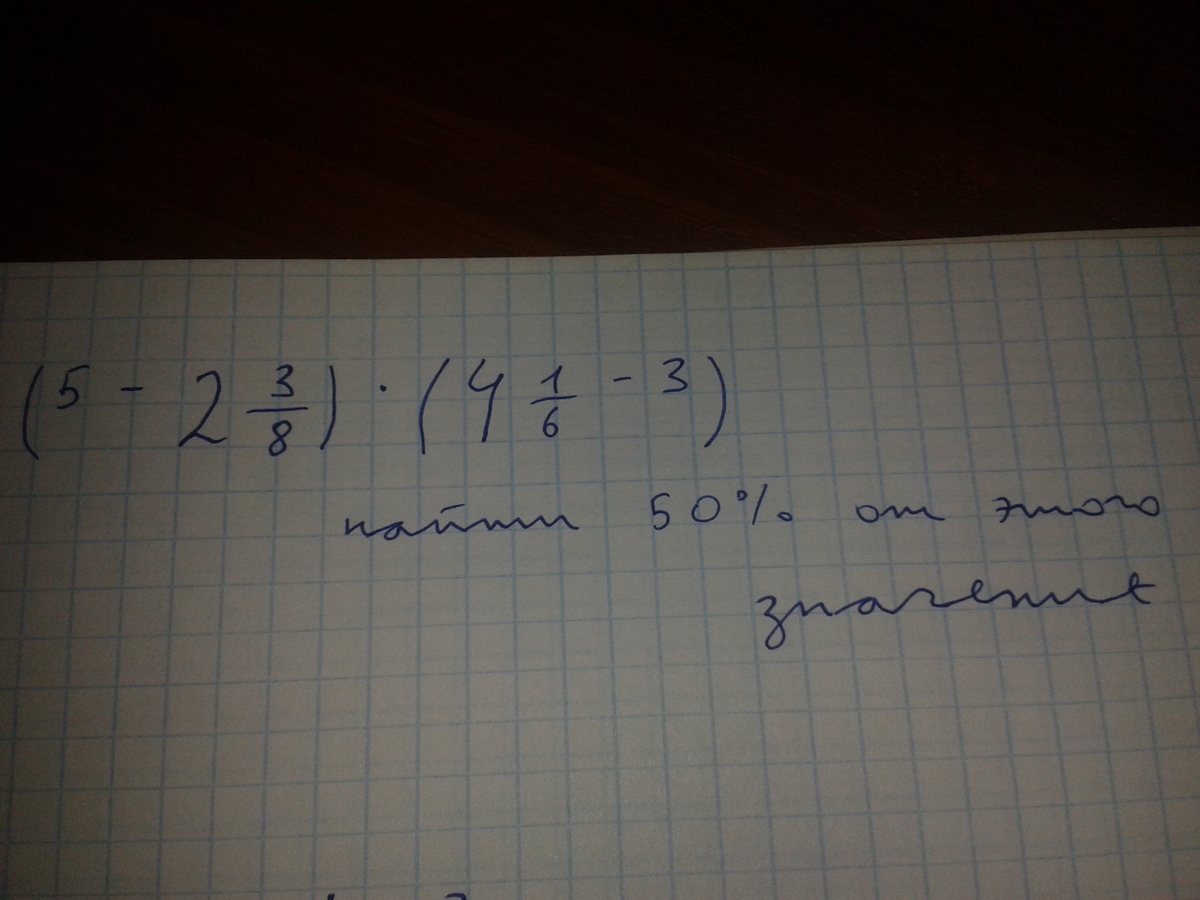 (5 - 2 3/8) · (4 1/6 - 3)
найти 50% от этого
значения